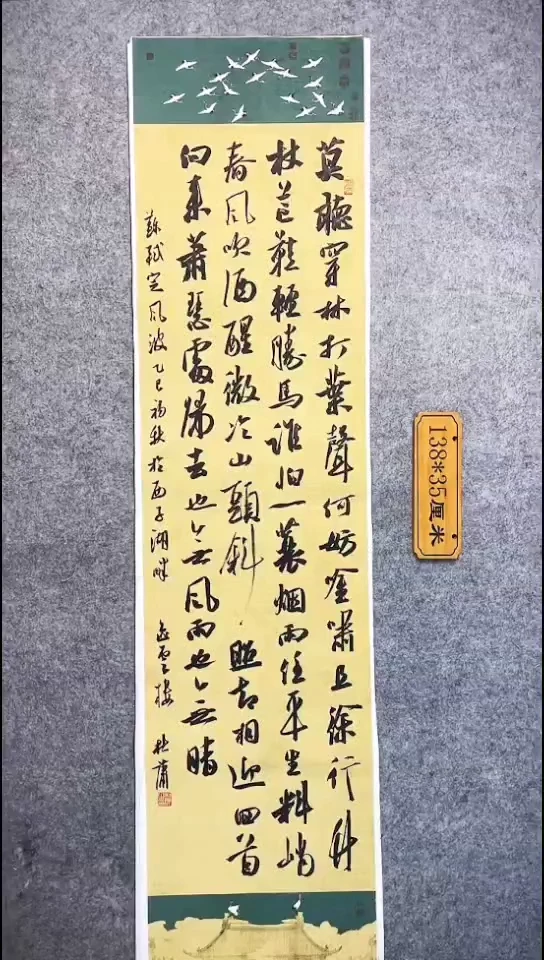 莫聽穿林打葉聲何妨唫嘯且徐行竹
杖芒鞋輕勝馬誰怕一蓑烟雨任平生料峭
春風吹酒醒微冷山頭斜照却相迎回首
向来蕭瑟處歸去也无風雨也无晴
蘇軾定風波乙巳初秋於西子湖畔 雲樓 杜蕭
138*35厘米